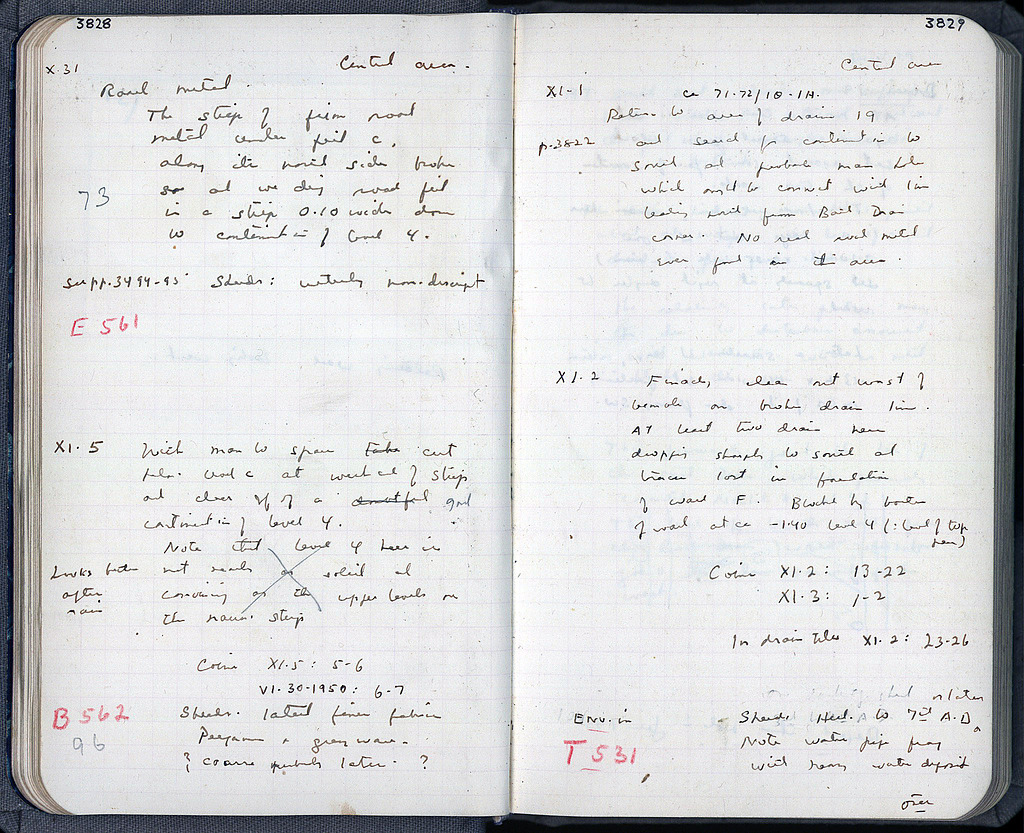 3828
X·31 Central area.
Road metal.
The strip of firm road
metal under fill c,
along its north side broke
so that we dug road fill
73
in a strip 0.10 wide down
to continuation of level 4.
see pp. 3494-95 Sherds: utterly non-descript
E 561
XI·5 With man to spare cut
at west end of strip
and clear off of a doubtful good
continuation of level 4.
Note that level 4 here is
Looks better not nearly as solid and
after convincing as the upper levels on
rain the main strip
Coins XI·5: 5-6
VI·30·1950: 6-7
B 562 Sherds. latest finer fabric
96 Pergam. & gray ware.
? coarse probably later. ?
3829
Central area
XI·1 ca 71-72/18-1A.
Return to area of drain 19
p. 3822 and search for continuation to
south at probable man hole
which ought to connect with line
leading south from East Drain
corner. No real road metal
ever found in this area.
XI·2 Finally clean out west of
on broken drain line.
At least two drains here
dropping sharply to south and
traces lost in foundation
of wall F. Blocked by bottom
of wall at ca -1.40 level 4 (: level of top
here)
Coins XI·2: 13-22
XI·3: 1-2
In drain tiles XI·2: 23-26
or later
ENV. in Sherds Hell. to 7th A.D.
T 531 Note water pipe frag
with heavy water deposit
over